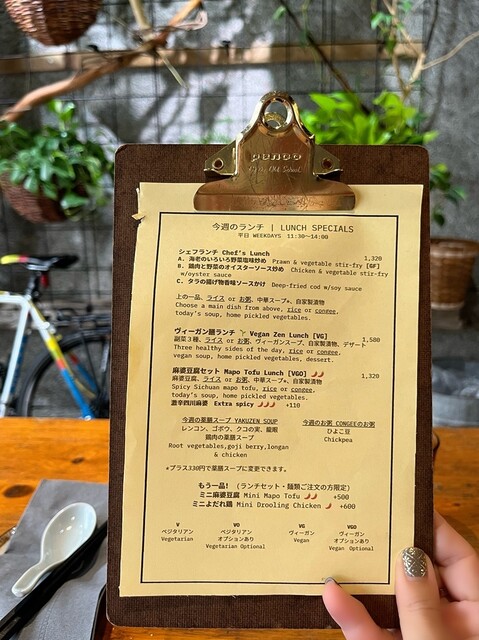 penco
Old School
今週のランチ | LUNCH SPECIALS
平日 WEEKDAYS 11:30〜14:00
シェフランチ Chef's Lunch 1,320
A. 海老のいろいろ野菜塩味炒め Prawn & vegetable stir-fry [GF]
B. 鶏肉と野菜のオイスターソース炒め Chicken & vegetable stir-fry
w/oyster sauce
C. タラの揚げ物香味ソースかけ Deep-fried cod w/soy sauce
上の一品、ライス or お粥、中華スープ*、自家製漬物
Choose a main dish from above, rice or congee,
today's soup, home pickled vegetables.
ヴィーガン膳ランチ Vegan Zen Lunch [VG] 1,580
副菜３種、ライス or お粥、ヴィーガンスープ、自家製漬物、デザート
Three healthy sides of the day, rice or congee,
vegan soup, home pickled vegetables, dessert.
麻婆豆腐セット Mapo Tofu Lunch [VGO] 1,320
麻婆豆腐、ライス or お粥、中華スープ*、自家製漬物
Spicy Sichuan mapo tofu, rice or congee,
today's soup, home pickled vegetables.
激辛四川麻婆 Extra spicy +110
今週の薬膳スープ YAKUZEN SOUP
レンコン、ゴボウ、クコの実、龍眼
鶏肉の薬膳スープ
Root vegetables,goji berry,longan
& chicken
今週のお粥 CONGEEのお粥
ひよこ豆
Chickpea
*プラス330円で薬膳スープに変更できます。
もう一品! (ランチセット・麺類ご注文の方限定)
ミニ麻婆豆腐 Mini Mapo Tofu +500
ミニよだれ鶏 Mini Drooling Chicken +600
V
ベジタリアン
Vegetarian
VO
ベジタリアン
オプションあり
Vegetarian Optional
VG
ヴィーガン
Vegan
VGO
ヴィーガン
オプションあり
Vegan Optional